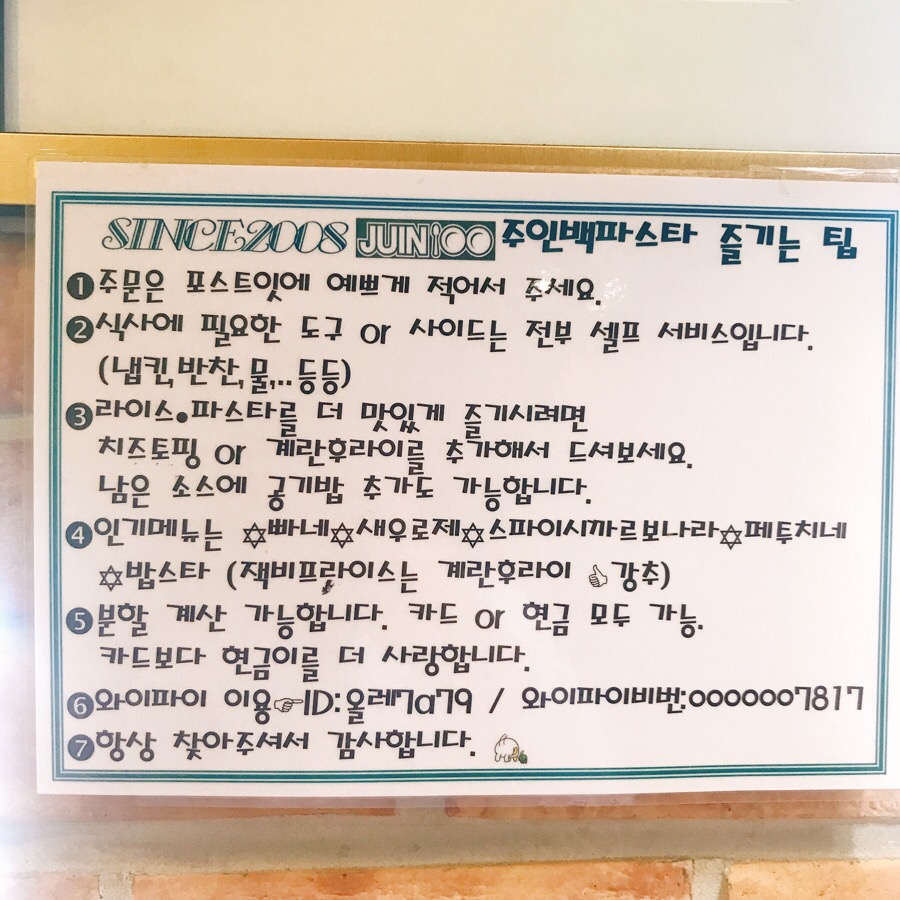 SINCE2008 JUIN100 주인백파스타 즐기는 팁
❶주문은 포스트잇에 예쁘게 적어서 주세요.
❷식사에 필요한 도구 or 사이드는 전부 셀프 서비스입니다.
(냅킨,반찬,물,..등등)
❸라이스•파스타를 더 맛있게 즐기시려면
치즈토핑 or 계란후라이를 추가해서 드셔보세요.
남은 소스에 공기밥 추가도 가능합니다.
❹인기메뉴는 ✡빠네✡새우로제✡스파이시까르보나라✡페투치네
✡밥스타 (잭비프라이스는 계란후라이 👍강추)
❺분할 계산 가능합니다. 카드 or 현금 모두 가능.
카드보다 현금이를 더 사랑합니다.
❻와이파이 이용☞ID:올레7a79 / 와이파이비번:0000007817
❼항상 찾아주셔서 감사합니다.